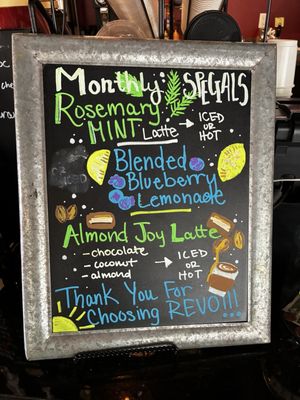 Monthly: SPECIALS
Rosemary
MINT Latte → ICED OR HOT
Blended
Blueberry
Lemonade
Almond Joy Latte
- chocolate
- coconut
- almond
→ ICED OR HOT
Thank You For
Choosing REVO!!!